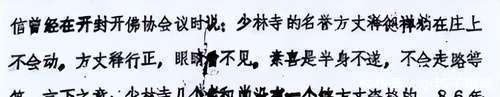 信曾经在开封开佛协会议时说：少林寺的名誉方丈释德禅躺在庄上
不会动。方丈释行正，眼睛看不见。素喜是半身不遂，不会走路等
等。言下之意：少林寺几个老和尚没有一个够方丈资格的。86年